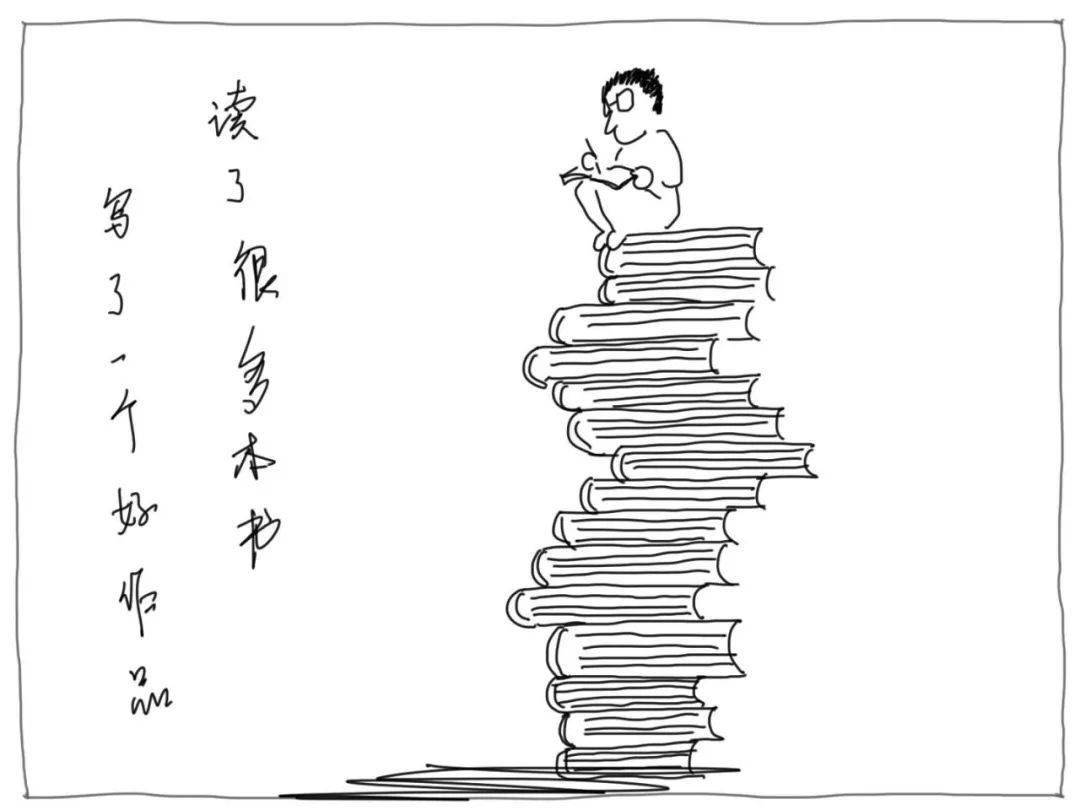 读了很多本书
写了一个好作品